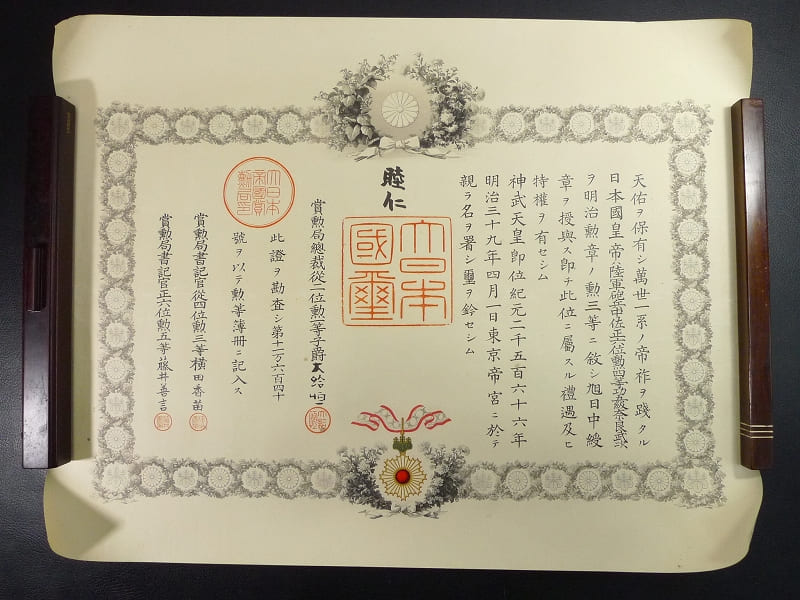 天佑ヲ保有シ萬世一系ノ帝祚ヲ踐タル
日本國皇帝ハ陸軍砲兵中佐正六位勲四等功五級奈良武次
ヲ明治勲章ノ勲三等ニ敘シ旭日中綬
章ヲ授與ス即チ此位ニ屬スル禮遇及ヒ
特權ヲ有セシム
神武天皇即位紀元二千五百六十六年
明治三十九年四月一日東京帝宮ニ於テ
親ラ名ヲ署シ璽ヲ鈐セシム
睦仁
大日本國璽
賞勲局總裁從二位勲一等子爵大給恒
此證ヲ勘査シ第十一万六百四十
號ヲ以テ勲等簿冊ニ記入ス
大日本帝國賞勲局印
賞勲局書記官從四位勲三等横田香苗
賞勲局書記官正六位勲五等藤井善言